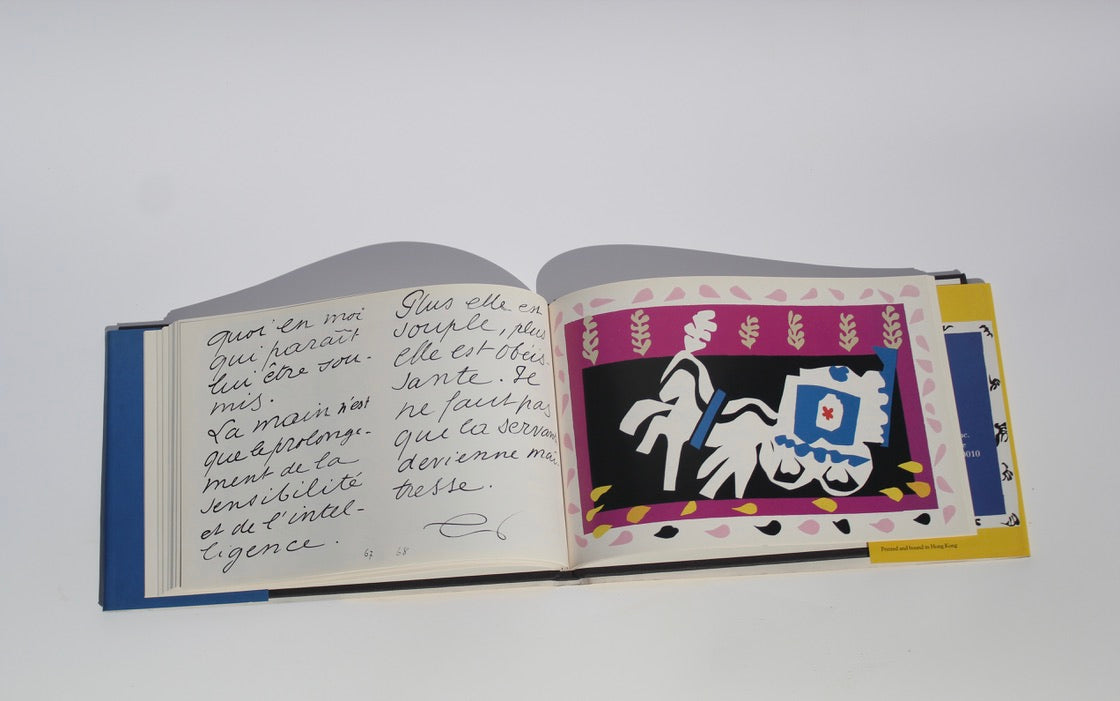 quoi en moi
qui paraît
lui être sou-
mis.
La main n'est
que le prolonge-
ment de la
sensibilité
et de l'intel-
ligence.
67
Plus elle est
souple, plus
elle est obéis-
sante. Il
ne faut pas
que la servante
devienne maî-
tresse.
68
0010
Printed and bound in Hong Kong